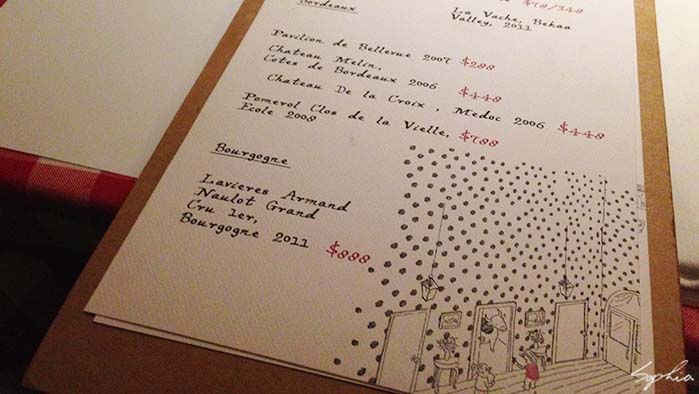 Bordeaux
$78/348
La Vache, Bekaa
Valley, 2011
Pavilion de Bellevue 2007 $288
Chateau Melin,
Cotes de Bordeaux 2006 $448
Chateau De la Croix, Medoc 2006 $448
Pomerol Clos de la Vielle, $788
Ecole 2008
Bourgogne
Lavieres Armand
Naulot Grand
Cru 1er,
Bourgogne 2011 $888
Sophia